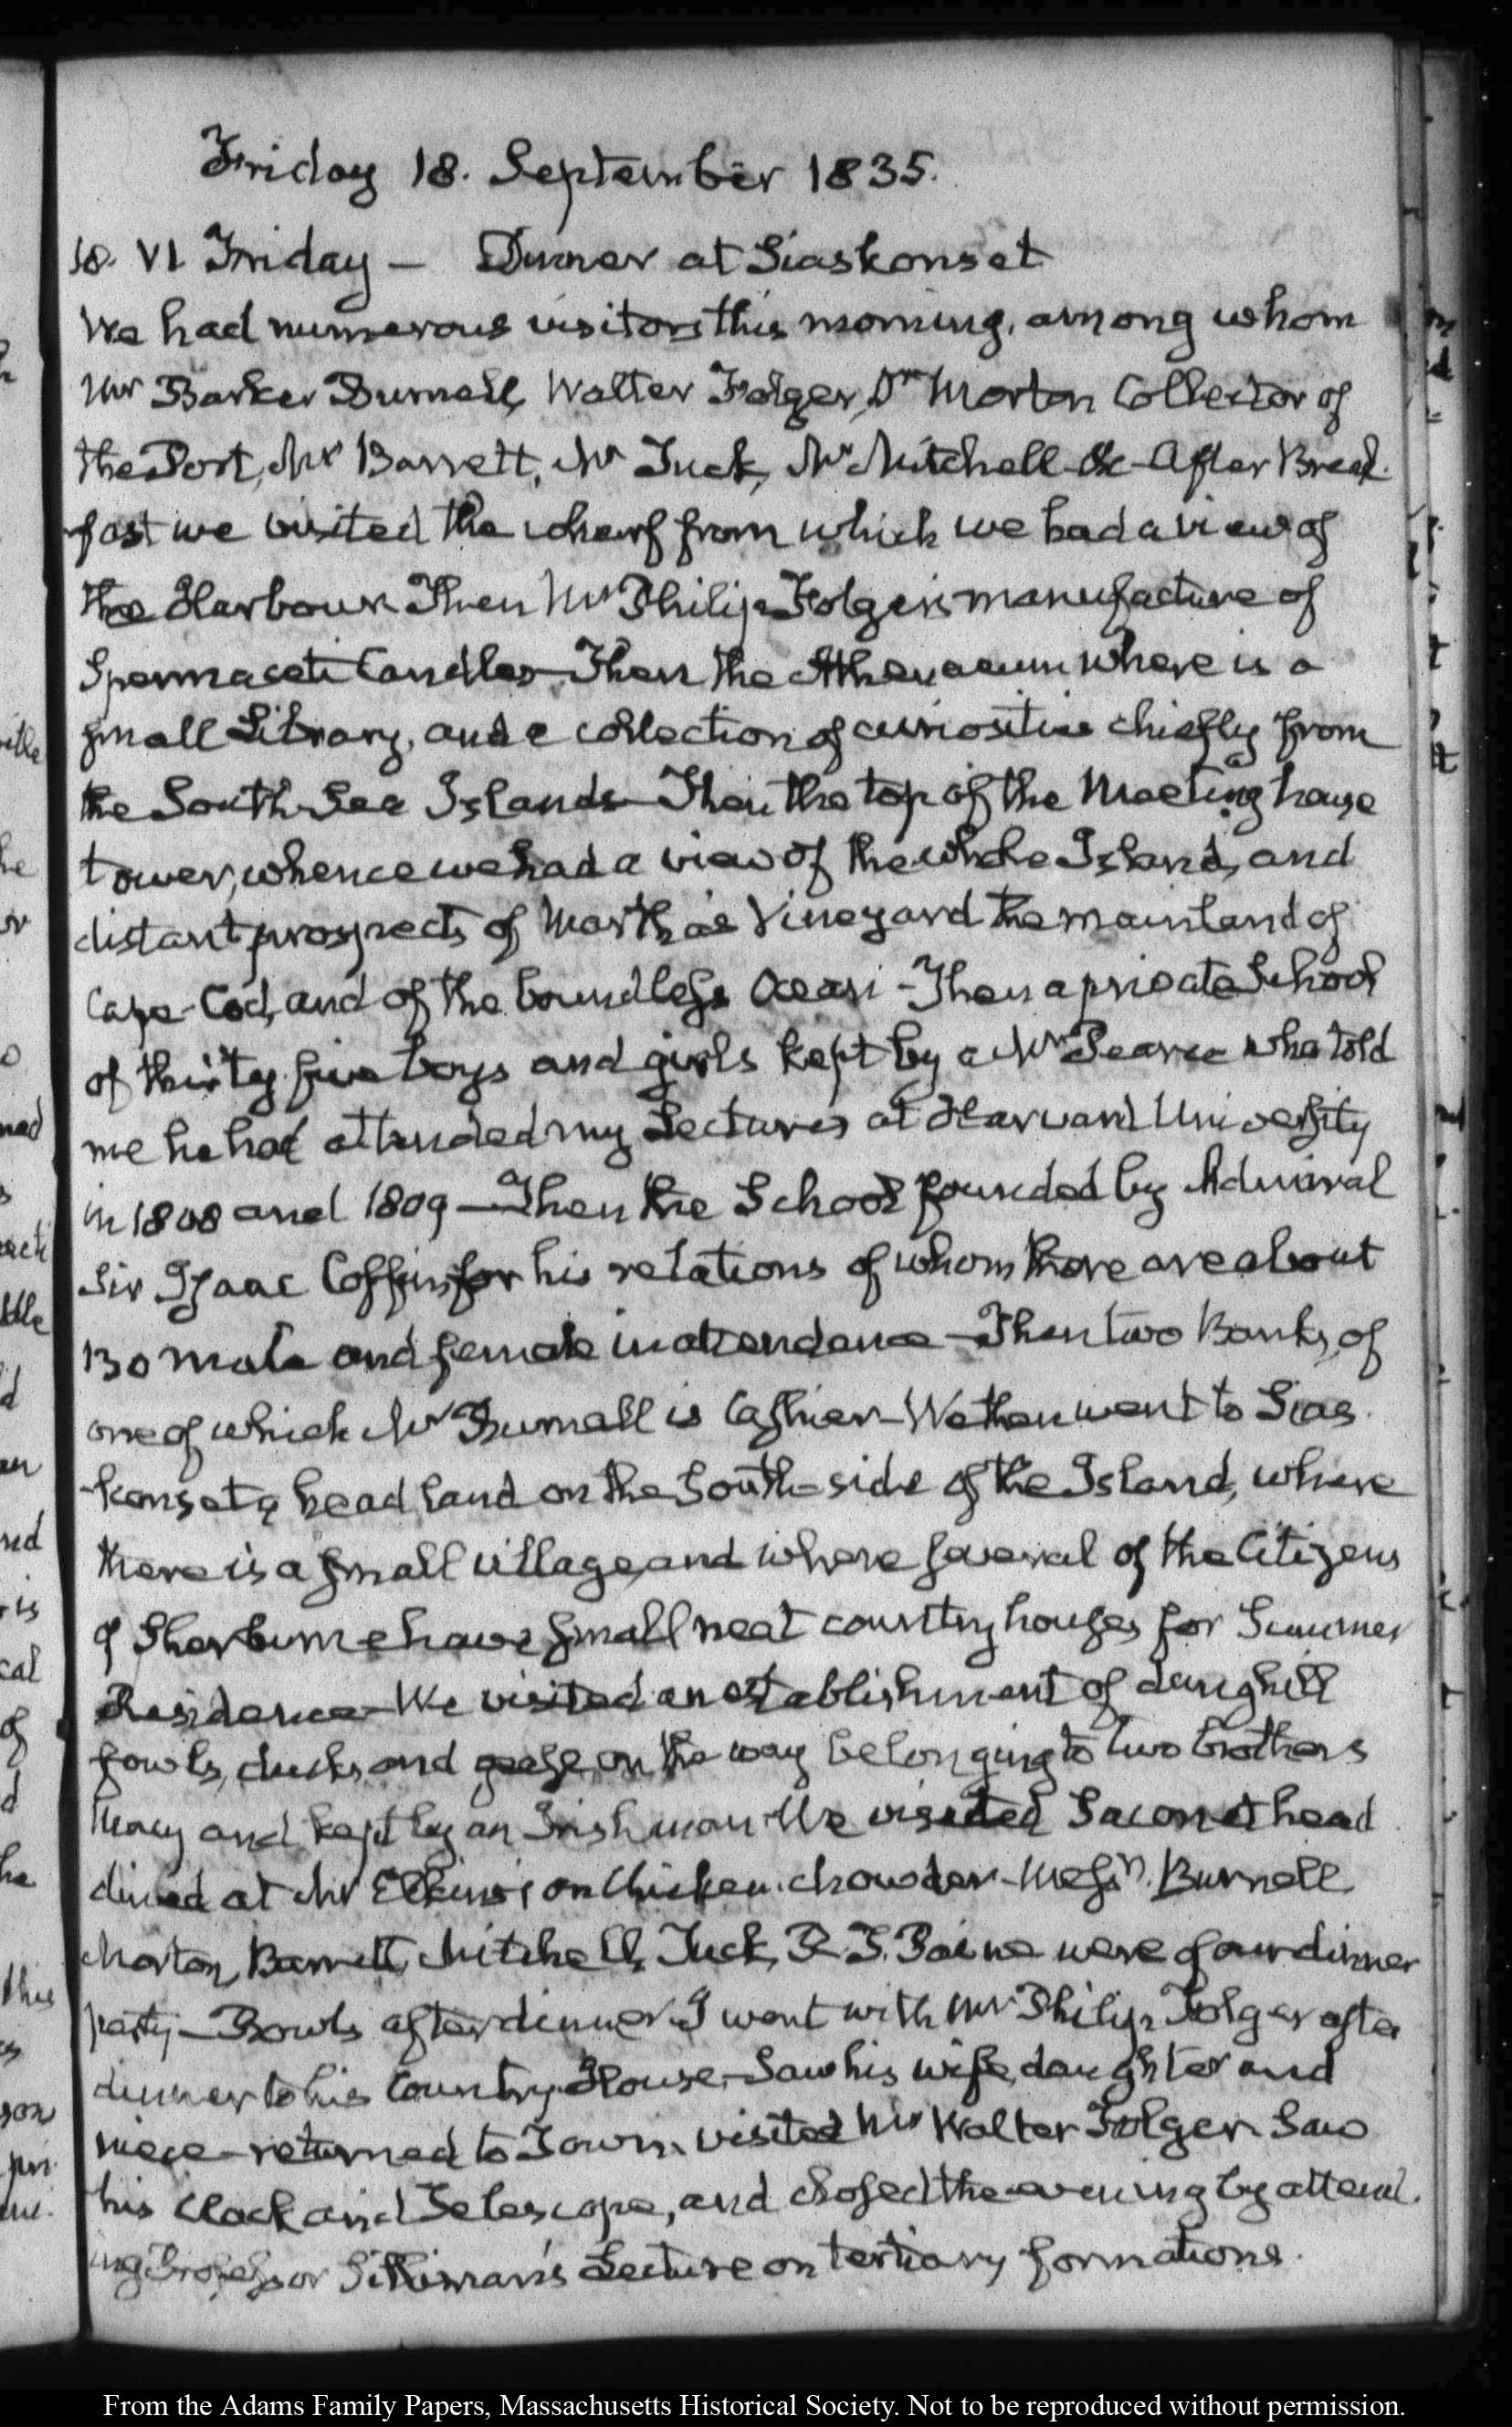 Friday 18. September 1835.
18. VI Friday — Dinner at Siaskonset
We had numerous visitors this morning, among whom
Mr Barker Burnell, Walter Folger, Dr Morton Collector of
the Port, Mr Barrett, Mr Tuck, Mr Mitchell &c – After Break-
fast we visited the wharf from which we had a view of
the Harbour. Then Mr Philip Folger's manufacture of
Spermaceti Candles – Then the Athenaeum where is a
small Library, and a collection of curiosities chiefly from
the South Sea Islands – Then the top of the Meeting house
tower, whence we had a view of the whole Island, and
distant prospects of Martha's Vineyard the mainland of
Cape-Cod, and of the boundless Ocean – Then a private School
of thirty five boys and girls kept by a Mr Pearce who told
me he had attended my Lectures at Harvard University
in 1808 and 1809 – Then the School founded by Admiral
Sir Isaac Coffin for his relations of whom there are about
130 male and female in attendance – Then two Banks, of
one of which Mr Burnell is Cashier – We then went to Sias-
-konset a head land on the South-side of the Island, where
there is a small village, and where several of the Citizens
of Sherburne have small neat country houses for Summer
Residence – We visited an establishment of dunghill
fowls, ducks, and geese on the way belonging to two brothers
Macy and kept by an Irishman. We visited head
dined at Mr Elkins's on Chicken. chowder – Messrs. Burnell
Morton, Barrett, Mitchell, Tuck, R. T. Paine were of our dinner
party – Bowls after dinner. I went with Mr Philip Folger after
dinner to his Country House – Saw his wife, daughter and
niece – returned to Town. visited Mr Walter Folger. Saw
his Clock and Telescope, and closed the evening by attend-
ing Professor Silliman's Lecture on tertiary formations.
From the Adams Family Papers, Massachusetts Historical Society. Not to be reproduced without permission.